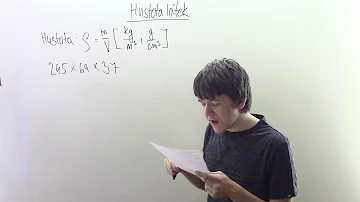 Hustota látek
Hustota: ρ = m/V [kg/m³, g/cm³]
245 × 69 × 37